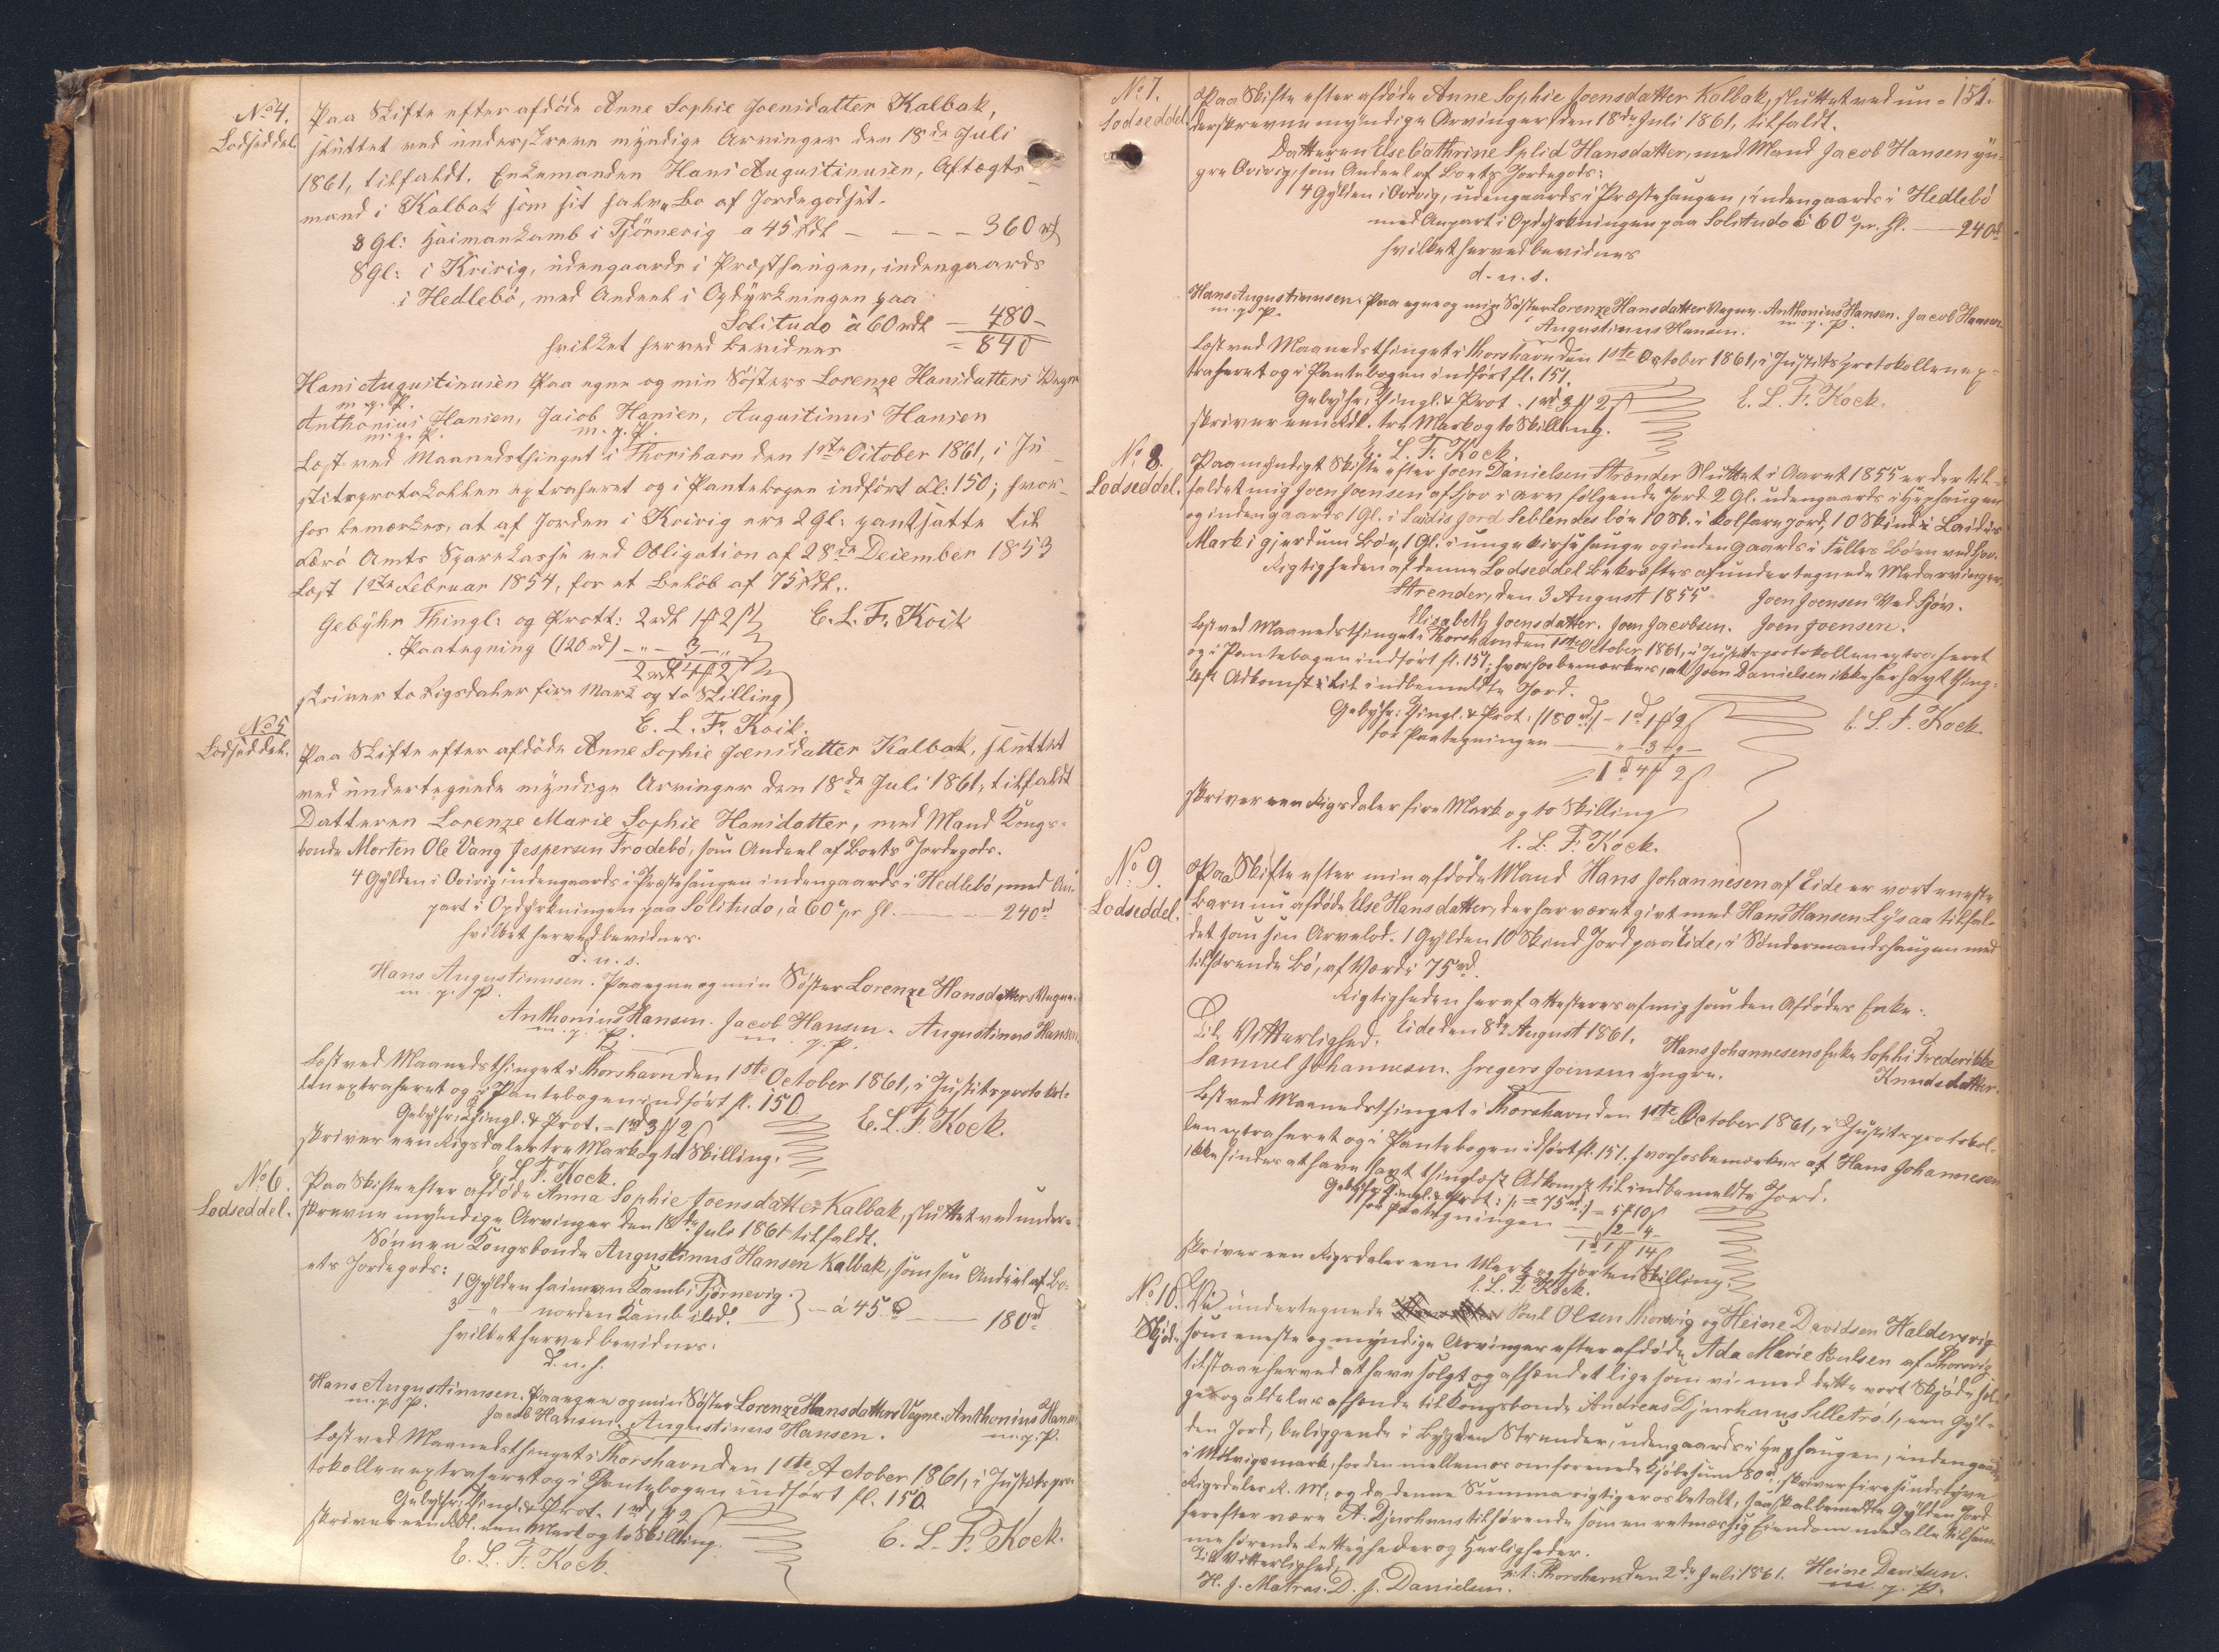 No 4.
Lodseddel.
Paa Skifte efter afdöde Anne Sophie Joensdatter Kalbak,
sluttet ved underskrevne myndige Arvinger den 18de Juli
1861, tilfaldt. Enkemanden Hans Augustinusen, Aftægts-
mand i Kalbak som sit halve Bo af Jordegodset.
8 Gl: Haimankamb i Tjörnevig a 45 Rdl - - - - 360 rd
8 Gl: i Kvivig, udengaards i Præsthaugen, indengaards
i Hedlebö, med Andeel i Opdyrkningen paa
Solitudo à 60 rdl - 480 -
hvilket herved bevidnes = 840
Hans Augustinusen Paa egne og min Søsters Lorenze Hansdatters Vegne
m. p. P.
Anthonius Hansen, Jacob Hansen, Augustinus Hansen
m. p. P. m. p. P.
Læst ved Maanedsthinget i Thorshavn den 1ste October 1861, i Ju-
stitsprotokollen extraheret og i Pantebogen indført Fl: 150; hvor-
hos bemærkes, at af Jorden i Kvivig ere 2 Gl: pantsatte til
Færö Amts Sparekasse ved Obligation af 28de December 1853
Læst 1ste Februar 1854, for et Beløb af 75 Rdl.
Gebyhr Thingl: og Prott: 2 rdl 1 ß 2 ß E. L. F. Kock
Paategning (120 rd) - " - 3 - "
2 rdl 4 ß 2 ß
skriver to Rigsdaler fire Mark og to Skilling
E. L. F. Kock.
No 5
Lodseddel.
Paa Skifte efter afdöde Anne Sophie Joensdatter Kalbak, sluttet
ved undertegnede myndige Arvinger den 18de Juli 1861, tilfaldt
Datteren Lorenze Marie Sophie Hansdatter, med Mand Kongs-
bonde Morten Ole Vang Jespersen Frodebö, som Andeel af Boets Jordegods.
4 Gylden i Qvivig indengaards i Præstehaugen indengaards i Hedlebö, med An-
part i Opdyrkningen paa Solitudo, à 60 pr Gl. - - - 240 rd
hvilket herved bevidnes.
d. u. s.
Hans Augustinusen. Paa egne og min Søster Lorenze Hansdatters Vegne.
m. p. P.
Anthonius Hansen. Jacob Hansen. Augustinus Hansen
m. p. P. m. p. P.
Læst ved Maanedsthinget i Thorshavn den 1ste October 1861, i Justitsprotokol-
len extraheret og i Pantebogen indført fl. 150
Gebyhr: Thingl. & Prot. = 1 rd 3 ß 2 ß E. L. F. Kock.
skriver een Rigsdaler tre Mark og to Skilling.
E. L. F. Kock.
No 6.
Lodseddel.
Paa Skifte efter afdöde Anna Sophie Joensdatter Kalbak, sluttet ved under-
skrevne myndige Arvinger den 18de Juli 1861 tilfaldt.
Sönnen Kongsbonde Augustinus Hansen Kalbak, som sin Andeel af Bo-
ets Jordegods:
1 Gylden haiman Kamb i Tjörnevig.
3 - " - norden Kamb ibd. - à 45 rd - - 180 rd
hvilket herved bevidnes.
d. u. s.
Hans Augustinusen. Paa egne og min Søster Lorenze Hansdatters Vegne. Anthonius Hansen
m. p. P. Jacob Hansen, Augustinus Hansen. m. p. P.
Læst ved Maanedsthinget i Thorshavn den 1ste October 1861, i Justitspro-
tokollen extraheret og i Pantebogen indført fl. 150
Gebyhr: Thingl. & Prot. 1 rd 1 ß 2 ß
skriver een Rdl. een Mark og to Skilling. E. L. F. Kock.
E. L. F. Kock.
151.
No 7.
Lodseddel
Paa Skifte efter afdöde Anne Sophie Joensdatter Kalbak, sluttet ved un-
derskrevne myndige Arvinger den 18de Juli 1861, tilfaldt.
Datteren Else Cathrine Splid Hansdatter, med Mand Jacob Hansen yn-
gre Qvivig, som Andeel af Boets Jordegods:
4 Gylden i Qvivig, udengaards i Præstehaugen, indengaards i Hedlebö
med Anpart i Opdyrkningen paa Solitudo à 60 pr. Gl. - 240 rd
hvilket herved bevidnes
d. u. s.
Hans Augustinusen. Paa egne og min Søster Lorenze Hansdatter Vegne. Anthonius Hansen. Jacob Hansen.
m. p. P. Augustinus Hansen. m. p. P.
Læst ved Maanedsthinget i Thorshavn den 1ste October 1861, i Justitsprotokollen ex-
traheret og i Pantebogen indført fl. 151.
Gebyhr: Thingl. & Prot. 1 rd 3 ß 2 ß E. L. F. Kock.
skriver een Rdl. tre Mark og to Skilling.
E. L. F. Kock.
No 8.
Lodseddel.
Paa myndigt Skifte efter Joen Danielsen Strænder Sluttet i Aaret 1855 er der til-
faldet mig Joen Joensen af Hov i Arv følgende Jord 2 Gl. udengaards i
og indengaards 1 Gl. i Jord 10 Sk. i 10 Skind i
Mark i gjærdum Böe, 1 Gl. i og indengaards i Fælles Böen ved Hov.
Rigtigheden af denne Lodseddel bekræftes af undertegnede Medarvinger.
Strender, den 3 August 1855 Joen Joensen Ved Hjóv.
Elisabeth Joensdatter. Joen Jacobsen. Joen Joensen.
Læst ved Maanedsthinget i Thorshavn den 1ste October 1861, i Justitsprotokollen extraheret
og i Pantebogen indført fl. 151; hvorhos bemærkes, at Joen Danielsen ikke har havt thing-
læst Adkomst til indbemeldte Jord.
Gebyhr: Thingl. & Prot. (180 rd) - 1 rd 1 ß 2 ß
for Paategningen - " - 3 - " - E. L. F. Kock.
1 rd 4 ß 2 ß
skriver een Rigsdaler fire Mark og to Skilling
E. L. F. Kock.
No 9.
Lodseddel.
Paa Skifte efter min afdöde Mand Hans Johannesen af Eide er vort eneste
Barn nu afdöde Else Hansdatter, der har været givt med Hans Hansen Lýsaa tilfal-
det som sin Arvelod. 1 Gylden 10 Skind Jord paa Eide, i Söndermandshaugen med
tilhørende Bö, af Værdi 75 rd.
Rigtigheden heraf attesteres af mig som den Afdødes Enke:.
Eide den 8de August 1861. Hans Johannesens Enke Sophi Frederikke
Til Vitterlighed. Knudsdatter.
Samuel Johannesen. Gregers Joensen yngre.
Læst ved Maanedsthinget i Thorshavn den 1ste October 1861, i Justitsprotokol-
len extraheret og i Pantebogen indført fl. 151. hvorhos bemærkes at Hans Johannesen
ikke findes at have havt thinglæst Adkomst til indbemeldte Jord.
Gebyhr: Thingl. & Prot: (: = 75 rd :) = 5 ß 10 ß
for Paategningen - - 2 - 4 -
1 rd 1 ß 14 ß
skriver een Rigsdaler een Mark og fjorten Skilling.
E. L. F. Kock.
No 10.
Skjöde
Vi undertegnede Poul Olsen Thorsvig og Heine Davidsen Haldersvig
som eneste og myndige Arvinger efter afdöde Ada Marie Poulsen af Thorsvig
tilstaae herved at have solgt og afhændet ligesom vi med dette vort Skjöde sæl-
ge og aldeles afhænde til Kongsbonde Andreas Djurhuus Selletrö. 1, een Gyl-
den Jord, beliggende i Bygden Strænder, udengaards i haugen, indengaards
i Mølvigsmark, for den mellem os omforenede Kjøbesum 80 rd. skriver firesindstyve
Rigsdaler R. M; og da denne Summa rigtig er os betalt, saa skal bemeldte Gylden Jord
herefter være A. Djurhuus tilhørende som en retmæssig Eiendom med alle tilhan-
me hörende Rettigheder og Herligheder.
Til Vitterlighed. p. t. Thorshavn den 2de Juli 1861. Heine Davidsen.
H. J. Matras. D. J. Danielsen. m. p. P.